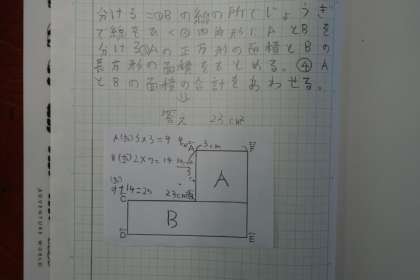 分ける=③Bの線の所でじょうぎ
で線をひく③四角形にAとBを
分ける③Aの正方形の面積とBの
長方形の面積をもとめる。④A
とBの面積の合計をあわせる。
↓
答え 23cm²
A(式)3×3=9
3cm
B(式)2×7=14
(式)
9+14=23
23cm²
A
B
C
D
E
F
ADVENTURE WORLD